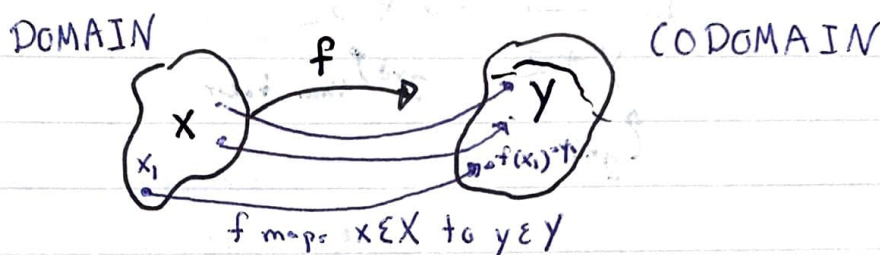 DOMAIN
CODOMAIN
f
X
Y
x₁
f(x₁)=y₁
f maps x∈X to y∈Y